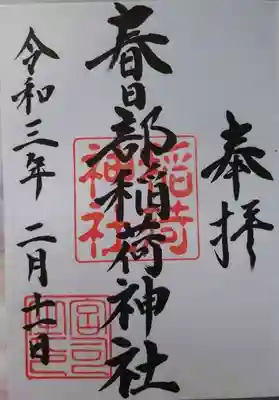 奉拝
春日部稲荷神社
稲荷神社
令和三年 二月十一日